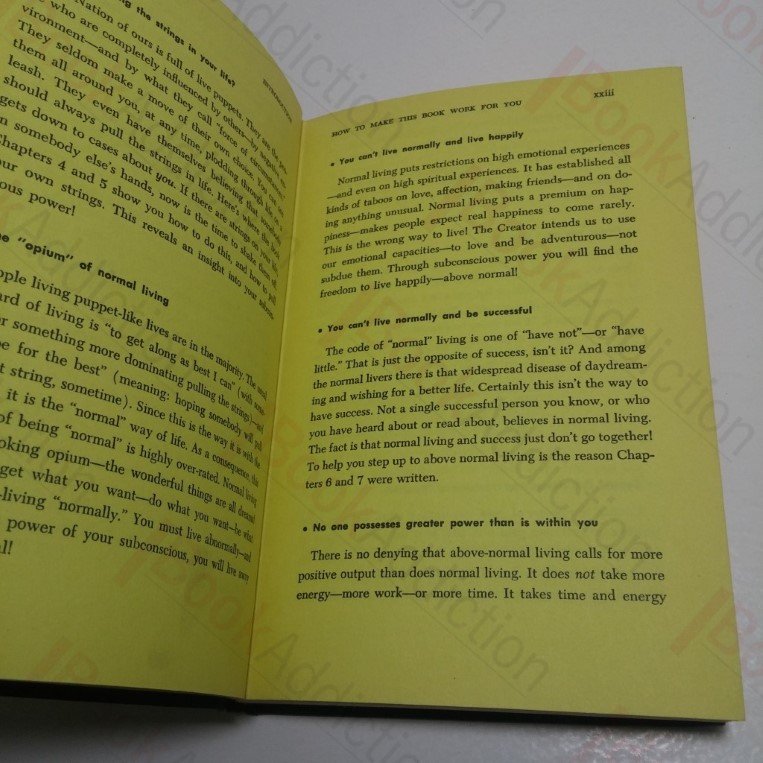 ng the strings in your life?
INTRODUCTION
Nation of ours is full of live puppets. They are the
who are completely influenced by others—by
vironment—and by what they call "force of circumstance."
They seldom make a move of their own choice. You can see
them all around you, at any time, plodding through life on a
leash. They even have themselves believing that somebody
should always pull the strings in life. Here's where the book
gets down to cases about you. If there are strings on your life
n somebody else's hands, now is the time to shake them off.
Chapters 4 and 5 show you how to do this, and how to pull
our own strings. This reveals an insight into your subcon-
ious power!
he "opium" of normal living
ople living puppet-like lives are in the majority. The
ard of living is "to get along as best I can" (with some-
r something more dominating pulling the strings)—and
pe for the best" (meaning: hoping somebody will pull
t string, sometime). Since this is the way it is with the
it is the "normal" way of life. As a consequence, this
of being "normal" is highly over-rated. Normal living
oking opium—the wonderful things are all dreams!
get what you want—do what you want—be what
-living "normally." You must live abnormally—and
power of your subconscious, you will live more
al!
HOW TO MAKE THIS BOOK WORK FOR YOU
xxiii
• You can't live normally and live happily
Normal living puts restrictions on high emotional experiences
—and even on high spiritual experiences. It has established all
kinds of taboos on love, affection, making friends—and on do-
ing anything unusual. Normal living puts a premium on hap-
piness—makes people expect real happiness to come rarely.
This is the wrong way to live! The Creator intends us to use
our emotional capacities—to love and be adventurous—not
subdue them. Through subconscious power you will find the
freedom to live happily—above normal!
• You can't live normally and be successful
The code of "normal" living is one of "have not"—or "have
little." That is just the opposite of success, isn't it? And among
the normal livers there is that widespread disease of daydream-
ing and wishing for a better life. Certainly this isn't the way to
have success. Not a single successful person you know, or who
you have heard about or read about, believes in normal living.
The fact is that normal living and success just don't go together!
To help you step up to above normal living is the reason Chap-
ters 6 and 7 were written.
• No one possesses greater power than is within you
There is no denying that above-normal living calls for more
positive output than does normal living. It does not take more
energy—more work—or more time. It takes time and energy
BookAddiction